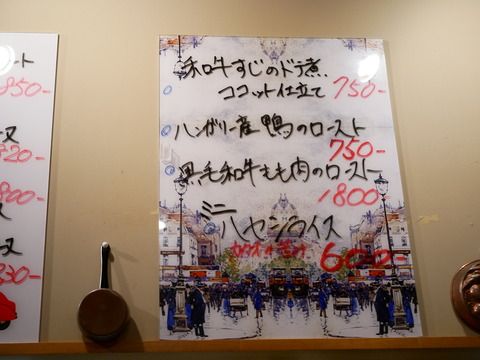 ート
850-
ス
820-
800-
ス
830-
和牛すじのドテ煮
ココット仕立て 750-
ハンガリー産鴨のロースト
750-
黒毛和牛もも肉のロースト
1800
ミニ
ハヤシライス
600-